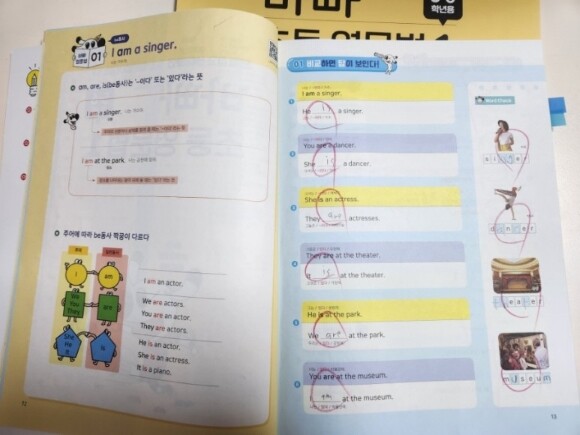 바빠
학년용
01
I am a singer.
am, are, is(be동사)는 '~이다' 또는 '있다'라는 뜻
I am a singer.
I am at the park.
주어에 따라 be동사 짝꿍이 다르다
I am
We
You
They
are
She
He
It
is
I am an actor.
We are actors.
You are an actor.
They are actors.
He is an actor.
She is an actress.
It is a piano.
12
01 비교하면 답이 보인다!
I am a singer.
He is a singer.
You are a dancer.
She is a dancer.
She is an actress.
They are actresses.
They are at the theater.
It is at the theater.
He is at the park.
We are at the park.
You are at the museum.
I am at the museum.
Word Check
singer
dancer
theater
museum
13